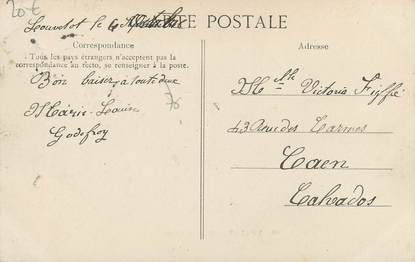 20€
le 4
CARTE POSTALE
Correspondance
Tous les pays étrangers n'acceptent pas la
correspondance au recto, se renseigner à la poste.
Bon baiser à toute
Marie-Louise
Godefroy
76
Adresse
Melle Victoria
43 Rue des Carmes
Caen
Calvados